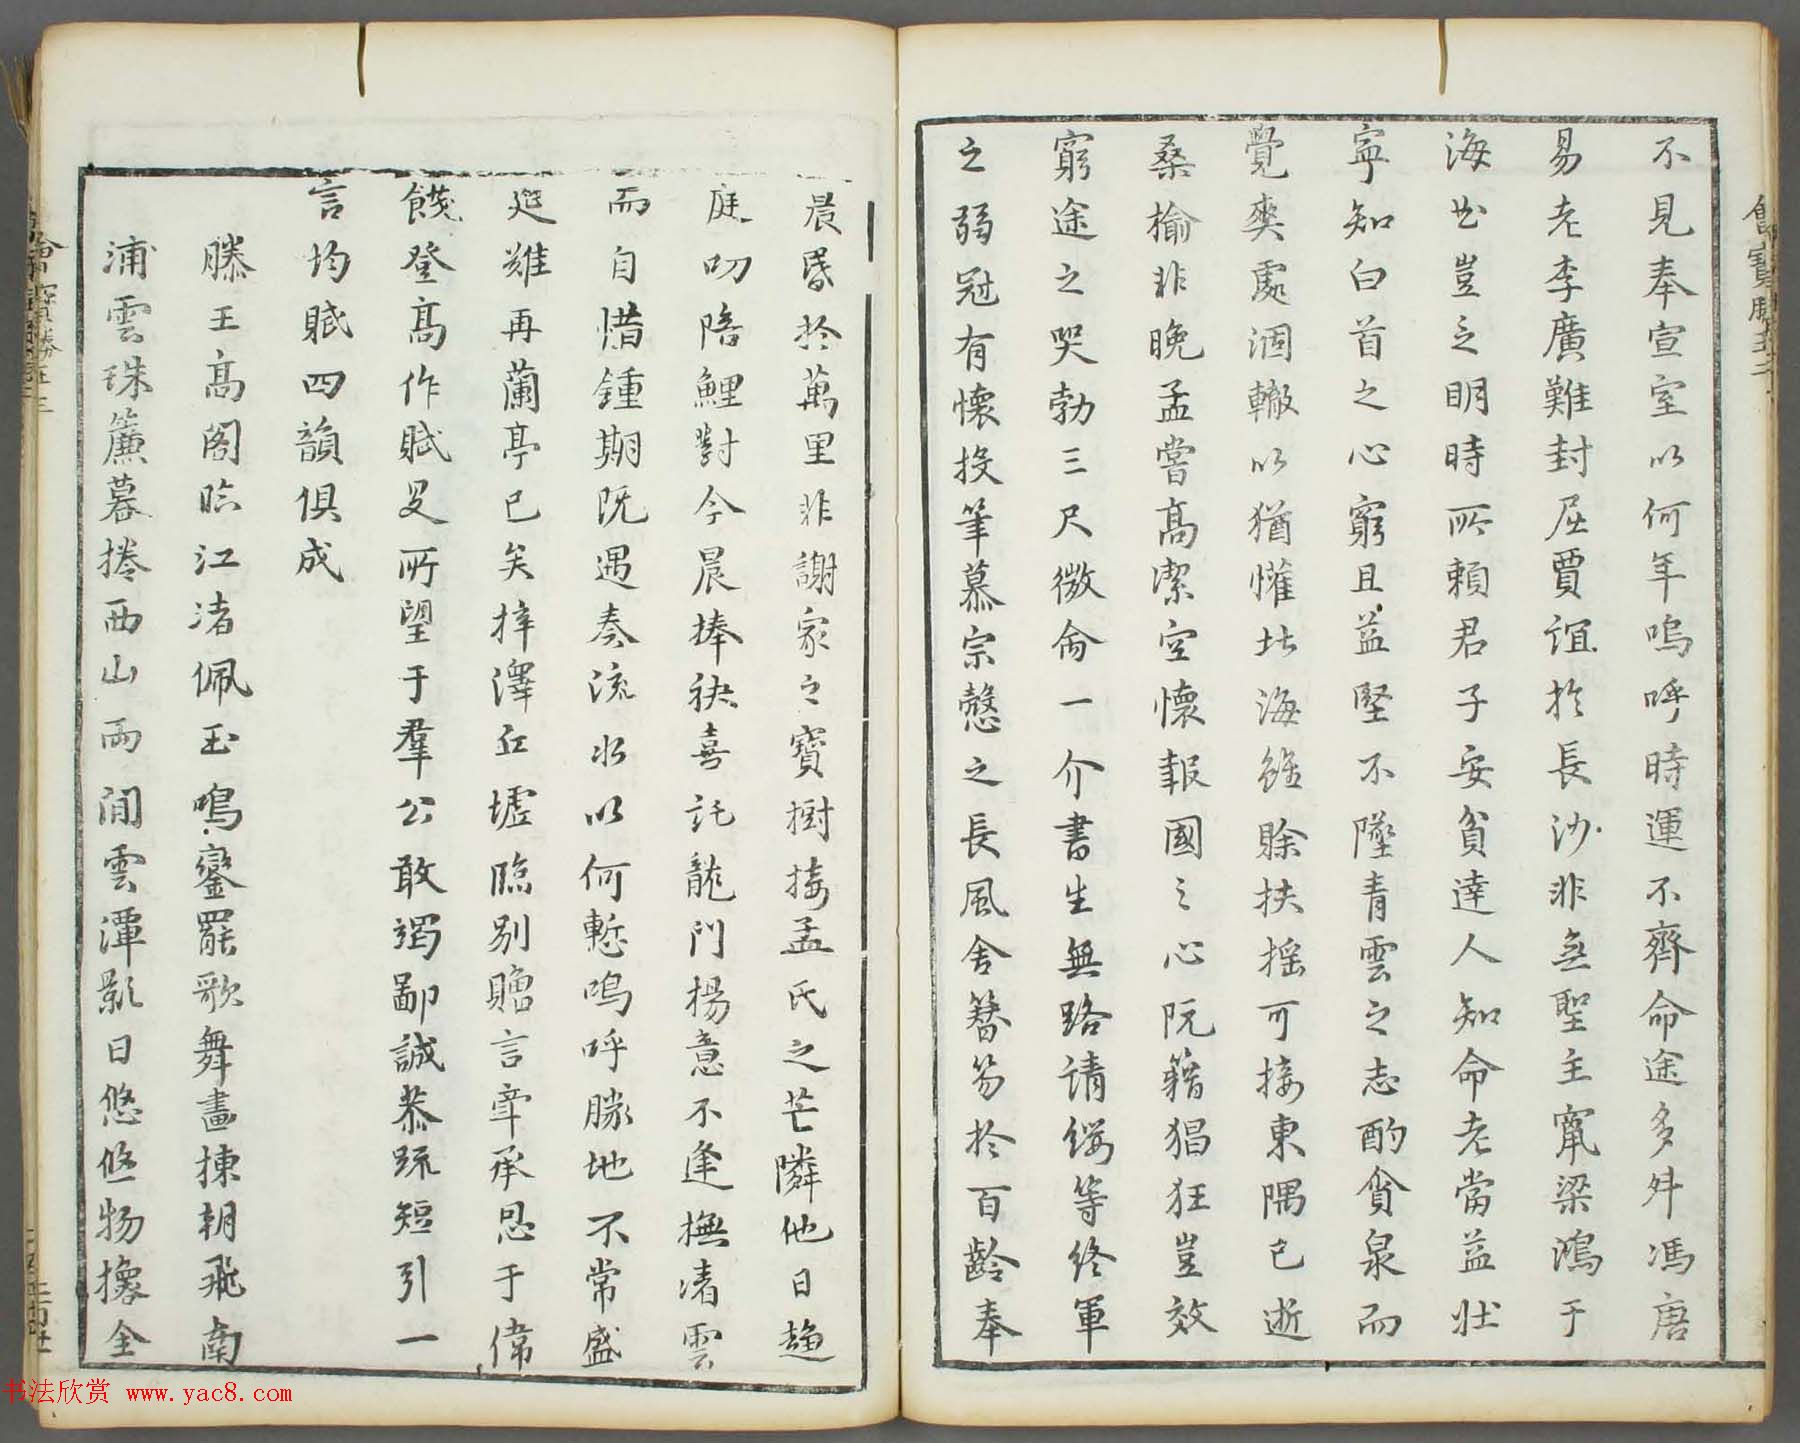 不見奉宣室以何年嗚呼時運不齊命途多舛馮唐
易老李廣難封屈賈誼於長沙非無聖主竄梁鴻于
海曲豈乏明時所賴君子安貧達人知命老當益壯
寧知白首之心窮且益堅不墜青雲之志酌貪泉而
覺爽處涸轍以猶懽北海雖賖扶搖可接東隅已逝
桑榆非晚孟嘗高潔空懷報國之心阮籍猖狂豈效
窮途之哭勃三尺微命一介書生無路請纓等終軍
之弱冠有懷投筆慕宗慤之長風舍簪笏於百齡奉
晨昏於萬里非謝家之寶樹接孟氏之芒隣他日趨
庭叨陪鯉對今晨捧袂喜託龍門楊意不逢撫凌雲
而自惜鍾期既遇奏流水以何慙嗚呼勝地不常盛
筵難再蘭亭已矣梓澤丘墟臨別贈言幸承恩于偉
餞登高作賦是所望于羣公敢竭鄙誠恭疏短引一
言均賦四韻俱成
滕王高閣臨江渚佩玉鳴鑾罷歌舞畫棟朝飛南
浦雲珠簾暮捲西山雨閒雲潭影日悠悠物換全
書法欣赏 www.yac8.com